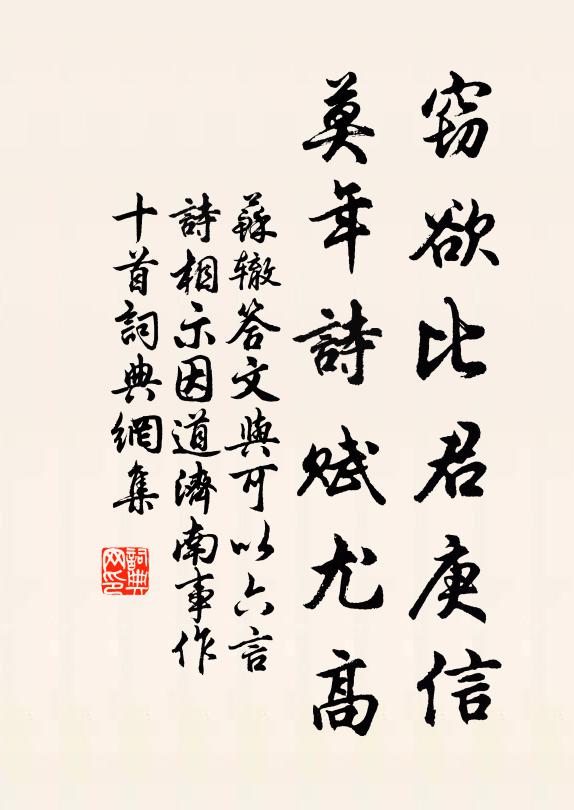 窃欲比君庾信
莫年詩賦尤高
蘇辙答文與可以六言
詩相示因道濟南事作
十首詞典網集
詞典网印